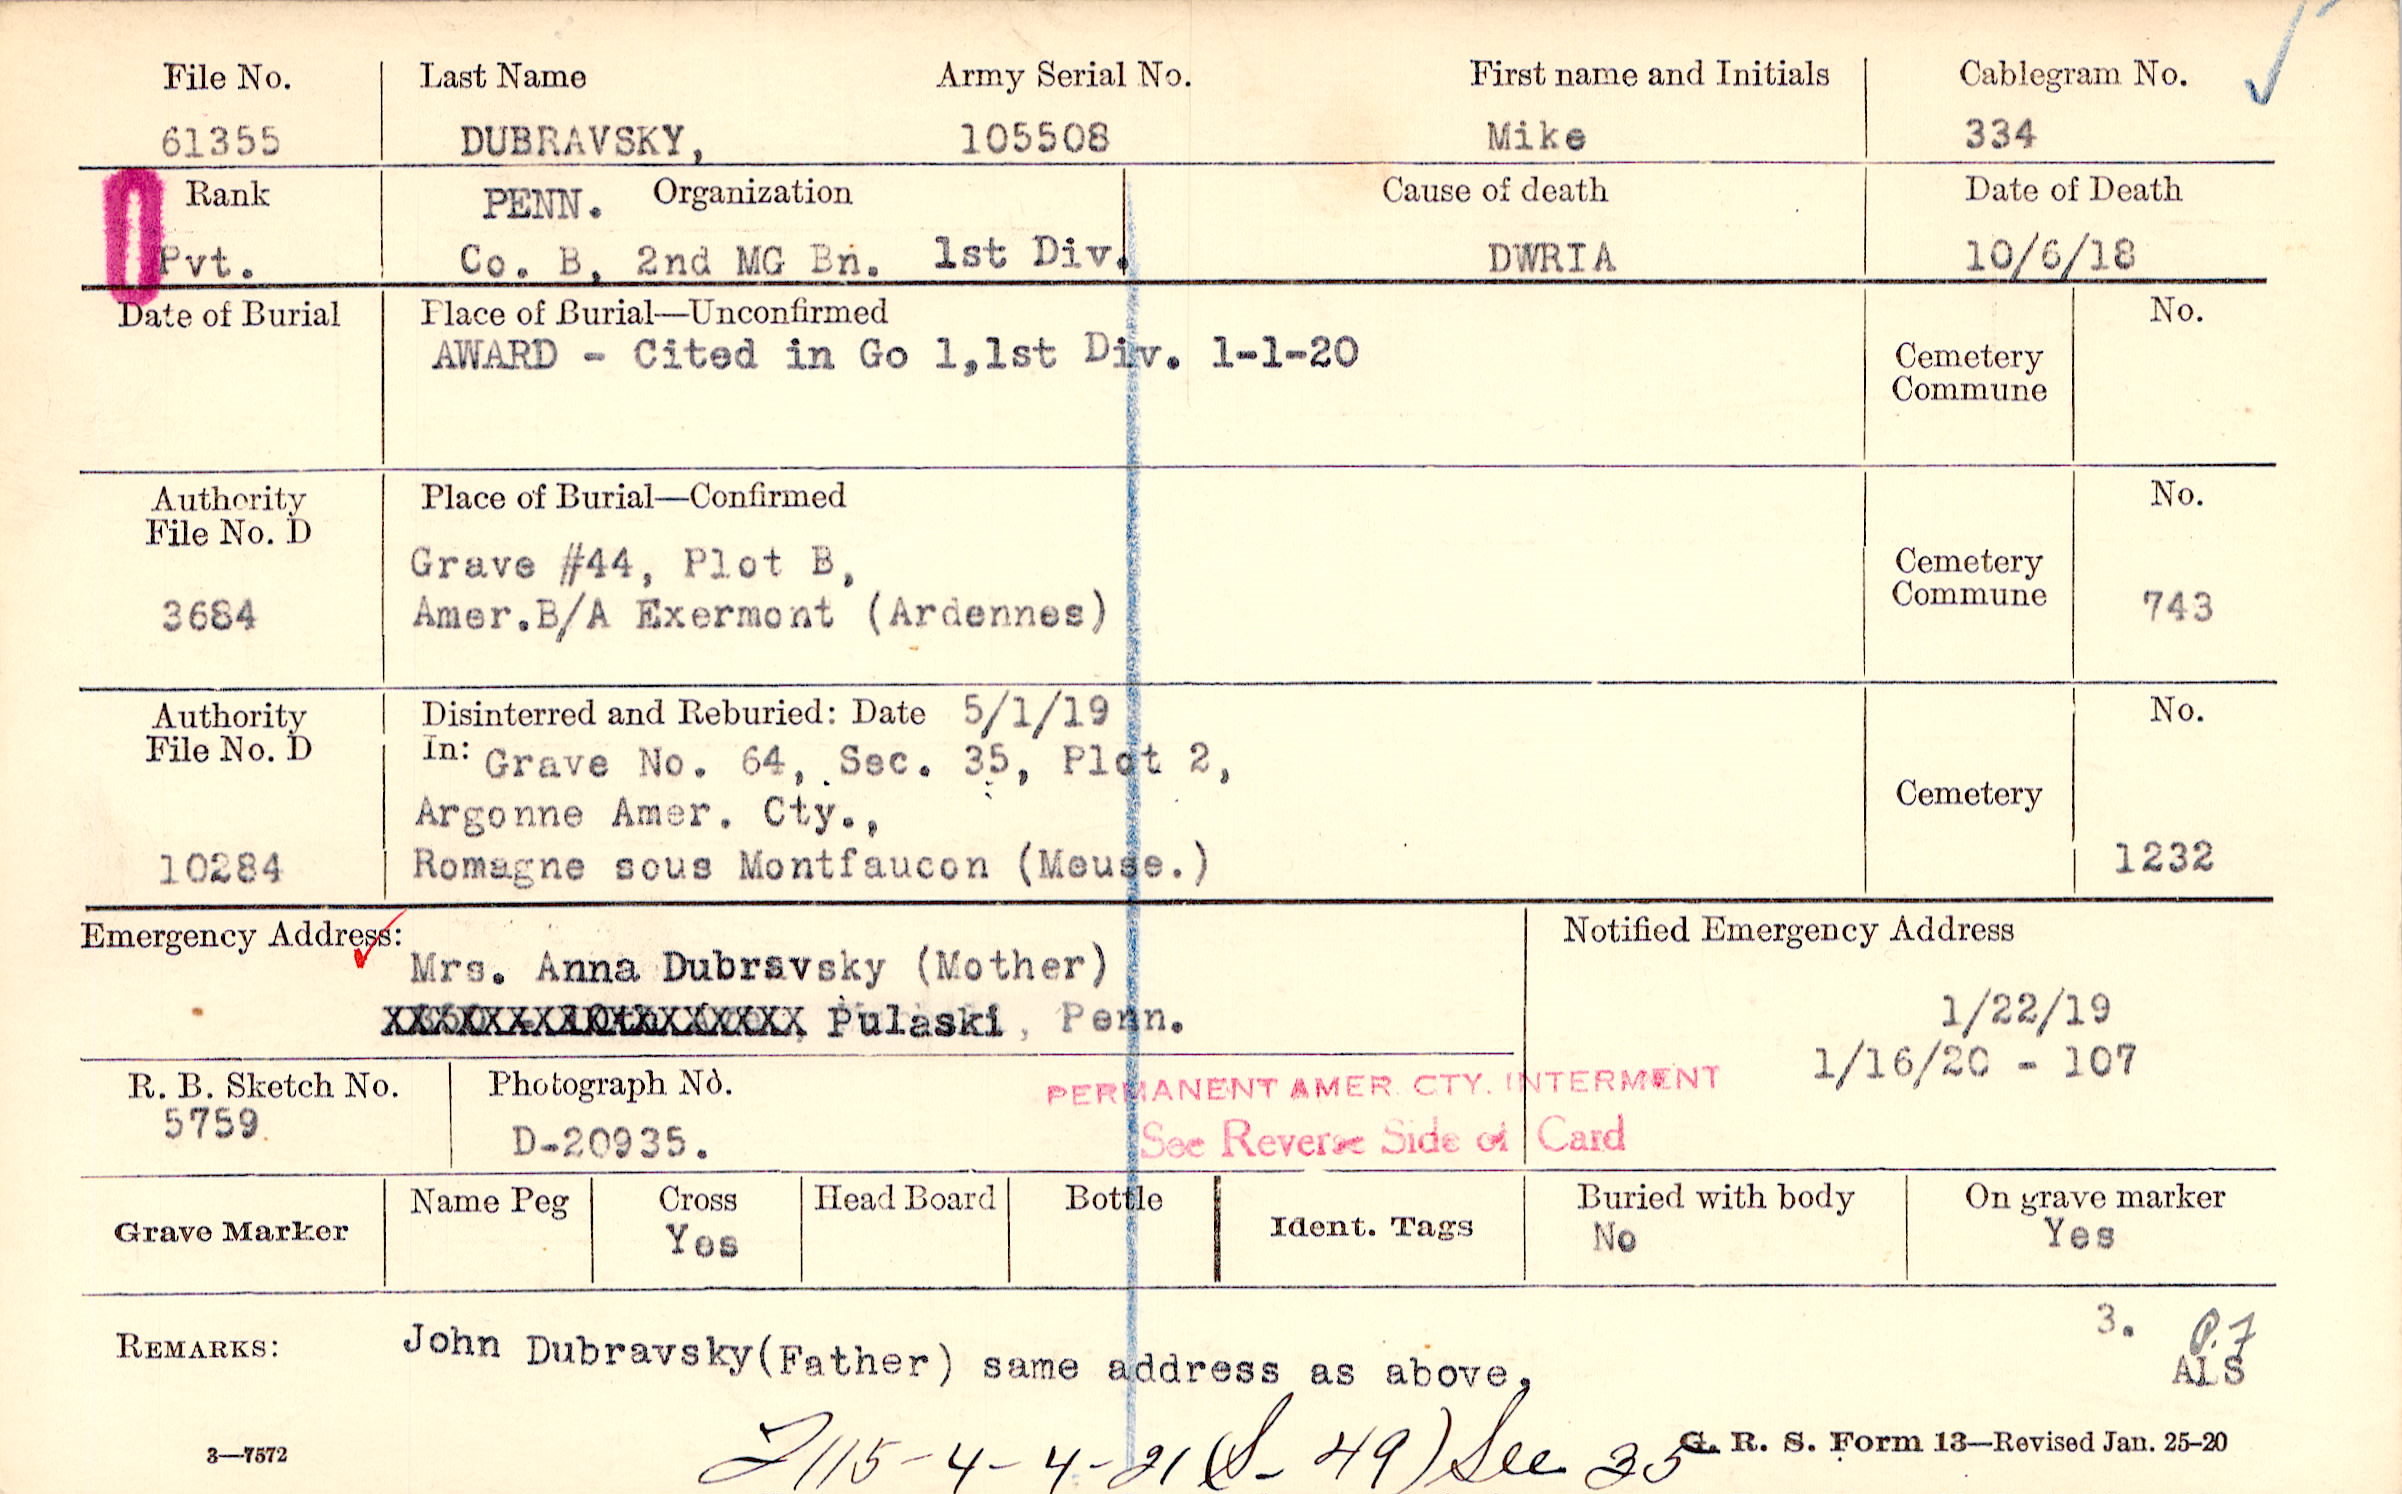 File No. Last Name Army Serial No. First name and Initials Cablegram No.
61355 DUBRAVSKY, 105508 Mike 334
Rank PENN. Organization Cause of death Date of Death
Pvt. Co. B, 2nd MG Bn. 1st Div. DWRIA 10/6/18
Date of Burial Place of Burial—Unconfirmed No.
AWARD - Cited in Go 1,1st Div. 1-1-20
Cemetery
Commune
Authority Place of Burial—Confirmed No.
File No. D
Grave #44, Plot B, Cemetery
3684 Amer.B/A Exermont (Ardennes) Commune 743
Authority Disinterred and Reburied: Date 5/1/19 No.
File No. D In: Grave No. 64, Sec. 35, Plot 2,
Argonne Amer. Cty., Cemetery
10284 Romagne sous Montfaucon (Meuse.) 1232
Emergency Address: Notified Emergency Address
Mrs. Anna Dubravsky (Mother)
Pulaski, Penn. 1/22/19
1/16/20 - 107
R. B. Sketch No. Photograph No. PERMANENT AMER. CTY. INTERMENT
5759 D-20935. See Reverse Side of Card
Grave Marker Name Peg Cross Head Board Bottle Ident. Tags Buried with body On grave marker
Yes No Yes
3.
P.7
REMARKS: John Dubravsky(Father) same address as above, ALS
3—7572 G. R. S. Form 13—Revised Jan. 25-20
2115-4-4-21 (S-49) See 35